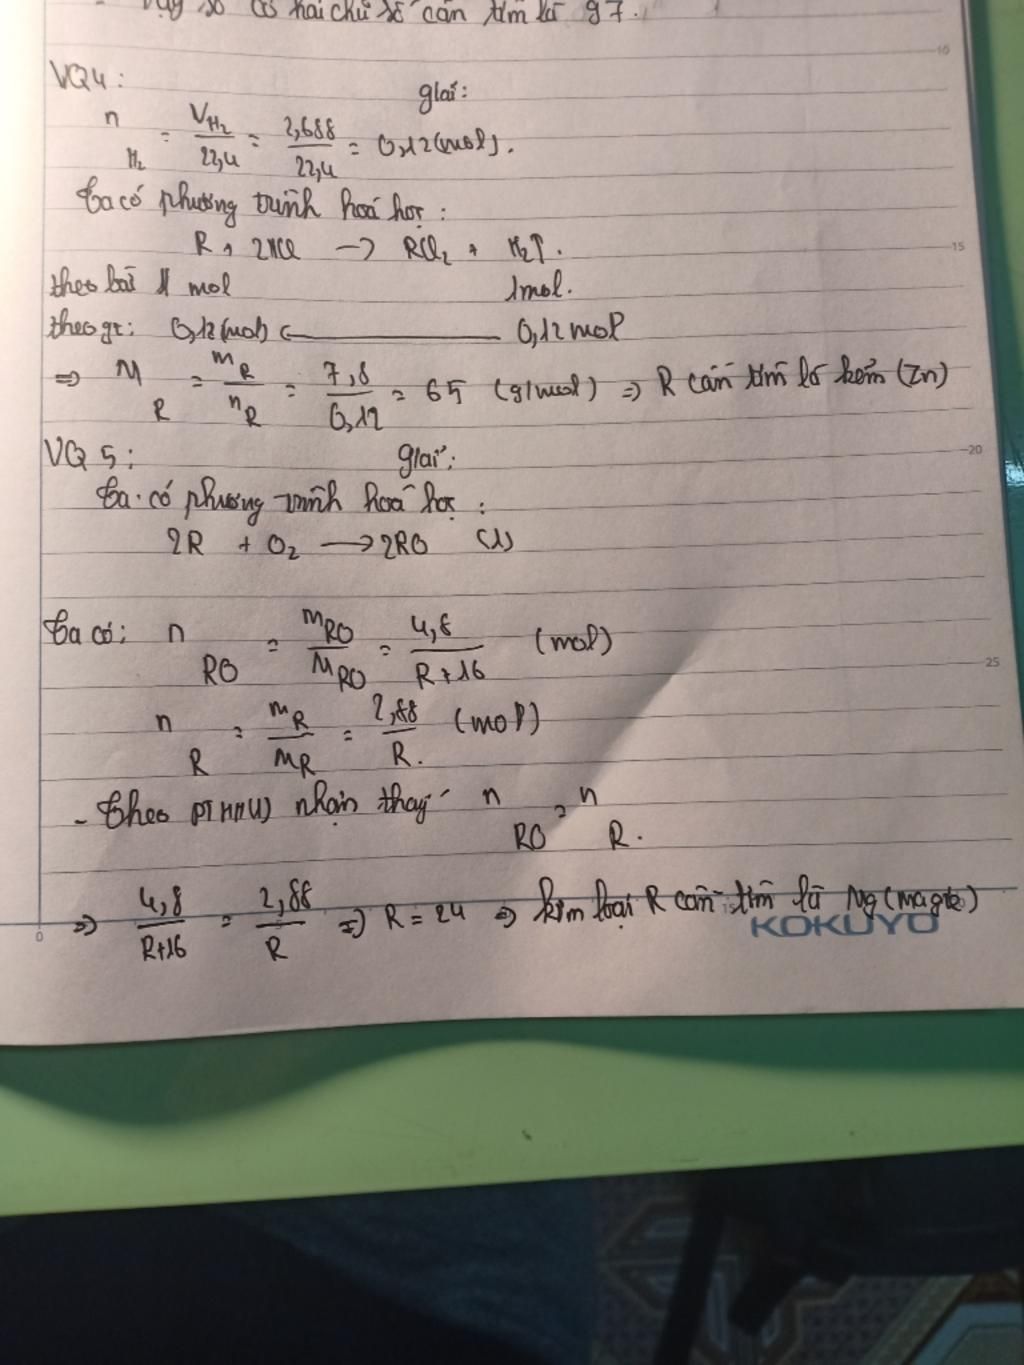 Vậy số có hai chữ số cần tìm là 97.
10
VQ4: giải:
n H₂ = V H₂ / 22,4 = 2,688 / 22,4 = 0,12 (mol).
Ta có phương trình hoá học:
15
R + 2HCl → RCl₂ + H₂↑.
theo bài 1 mol 1mol.
theo gt: 0,12 (mol) ← 0,12 mol
⇒ M R = m R / n R = 7,8 / 0,12 = 65 (g/mol) ⇒ R cần tìm là kẽm (Zn)
VQ 5: giải:
20
Ta có phương trình hoá học:
2R + O₂ → 2RO (1)
Ta có: n RO = m RO / M RO = 4,8 / R+16 (mol)
25
n R = m R / M R = 2,88 / R. (mol)
- Theo PTHH(1) nhận thấy n RO = n R.
⇒ 4,8 / R+16 = 2,88 / R ⇒ R = 24 ⇒ kim loại R cần tìm là Mg (magie)
0
KOKUYO